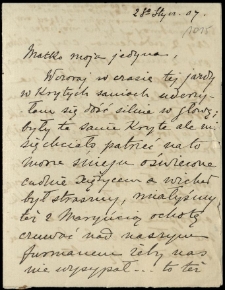 28 Stycz. 07.
Matko moja jedyna,
Wczoraj w czasie tej jazdy
w krytych saniach uderzy-
łam się dość silnie w głowę;
były te sanie kryte ale mi
się chciało patrzeć na to
morze śniegu oświecone
cudnie księżycem a wicher
był straszny, miałyśmy
też z Marynią ochotę
czuwać nad naszym
furmanem żeby nas
nie wysypał... to też